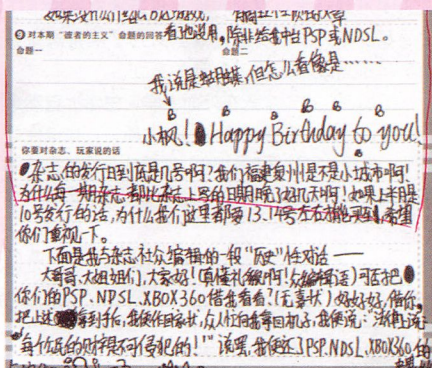 ❾ 对本期“彼者的主义”命题的回答
看地说用，除非给我中台PSP或NDSL。
命题一
命题二
我说是蝴蝶，但怎么看像是……
小枫！Happy Birthday to you!
你要对杂志、玩家说的话
杂志的发行日到底是几号啊？我们福建泉州是不是小城市啊！
为什么每一期杂志都比杂志上写的日期晚了好几天啊！如果上半月是
10号发行的话，为什么我们这里都要13、14号左右才能买到，希望
你们重视一下。
下面是我与杂志社众编辑的一段“历史”性对话——
大哥哥、大姐姐们，大家好！（真懂礼貌啊！众编辑语）可否把
你们的PSP、NDSL、XBOX360借我看看？（无辜状）好好好，借你，
把上述 拿到手后，我便作回家状，众人忙向我拿回机子，我便说：“法律上说：
每个公民的财产是不可侵犯的！”说罢，我便带了PSP、NDSL、XBOX360的